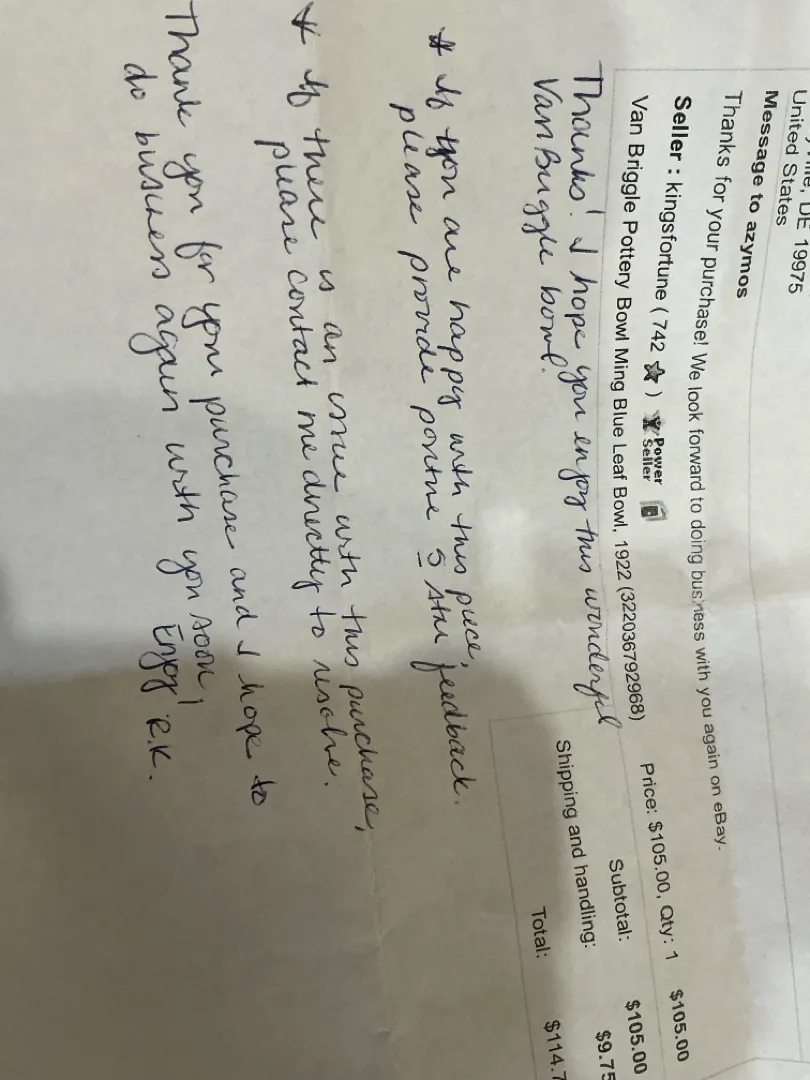 DE 19975
United States
Message to azymos
Thanks for your purchase! We look forward to doing business with you again on eBay.
Seller : kingsfortune ( 742 ) Power Seller
Van Briggle Pottery Bowl Ming Blue Leaf Bowl, 1922 (322036792968)
Price: $105.00, Qty: 1 $105.00
Subtotal: $105.00
Shipping and handling: $9.75
Total: $114.7
Thanks! I hope you enjoy this wonderful
Van Briggle bowl.
* If you are happy with this piece,
please provide positive 5 star feedback.
* If there is an issue with this purchase,
please contact me directly to resolve.
Thank you for your purchase and I hope to
do business again with you soon!
Enjoy! R.K.